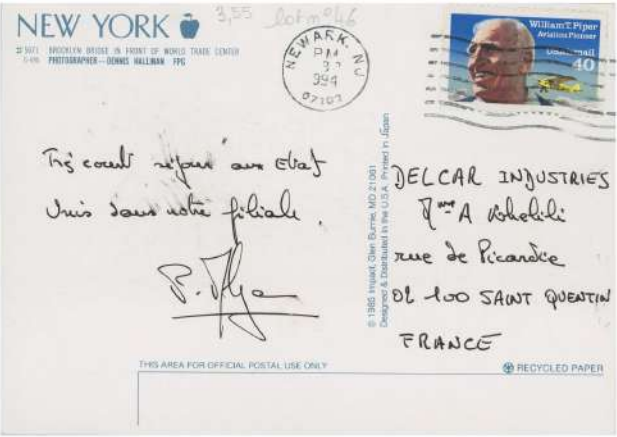 NEW YORK
3,55 lot nº46
BROOKLYN BRIDGE IN FRONT OF WORLD TRADE CENTER
PHOTOGRAPHER—DENNIS HALLINAN FPG
NEWARK, NJ
PM
1994
07102
William T. Piper
Aviation Pioneer
USAirmail
40
Très court séjour aux Etats
Unis dans notre filiale.
© 1985 Impact, Glen Burnie, MD 21061
Designed & Distributed in the U.S.A. Printed in Japan
DELCAR INDUSTRIES
Mme A Khelili
rue de Picardie
02 100 SAINT QUENTIN
FRANCE
THIS AREA FOR OFFICIAL POSTAL USE ONLY
RECYCLED PAPER